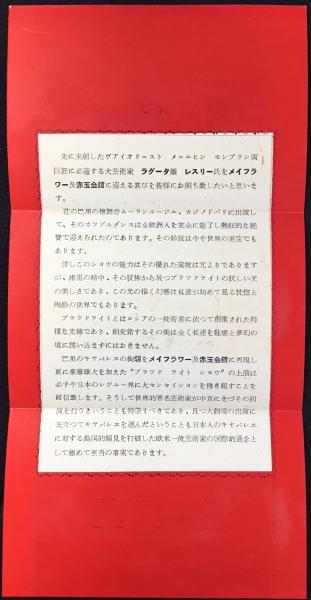 先に来朝したヴアイオリニスト メニユヒン モンブラン両
巨匠に必適する大芸術家 ラダータ嬢 レスリー氏をメイフラ
ワー及赤玉会舘に迎える喜びを皆様にお頒ち致したいと思いま
す。
花の巴里の檜舞台ムーランルージユ、カジノドパリに出演し
て、そのカツプルダンスは全欧洲人を完全に魅了し熱狂的な絶
賛で迎えられたのであります。その妙技は今や世界の至宝でも
あります。
併しこのシヨウの魅力はその優れた演技は元よりであります
が、漆黒の暗中、その肢体から放つブラツクライトの妖しい光
の美しさであり、この光の描く幻感は私達が始めて見る恍惚と
陶酔の世界でもあります。
ブラツクライトとはロシアの一技術者に依つて創案された特
種な光線であり、相交錯するその美は全く私達を魅惑と夢幻の
境に誘い込まずにはおきません。
巴里のキヤバレエの絢爛をメイフラワー及赤玉会舘に再現し
更に豪華雄大を加えた“ブラツク ライト シヨウ”の上演は
必ずや日本のレヴユー界に大センセイシヨンを捲き起すことを
確信致します。そうして世界的著名芸術家が中京に先づその初
演を行うということも特筆すべきであり、且つ大劇場の出演に
先立つてキヤバレエを選んだということも日本人のキヤバレエ
に対する島国的偏見を打破した欧米一流芸術家の国際的通念と
して極めて至当の事実であります。